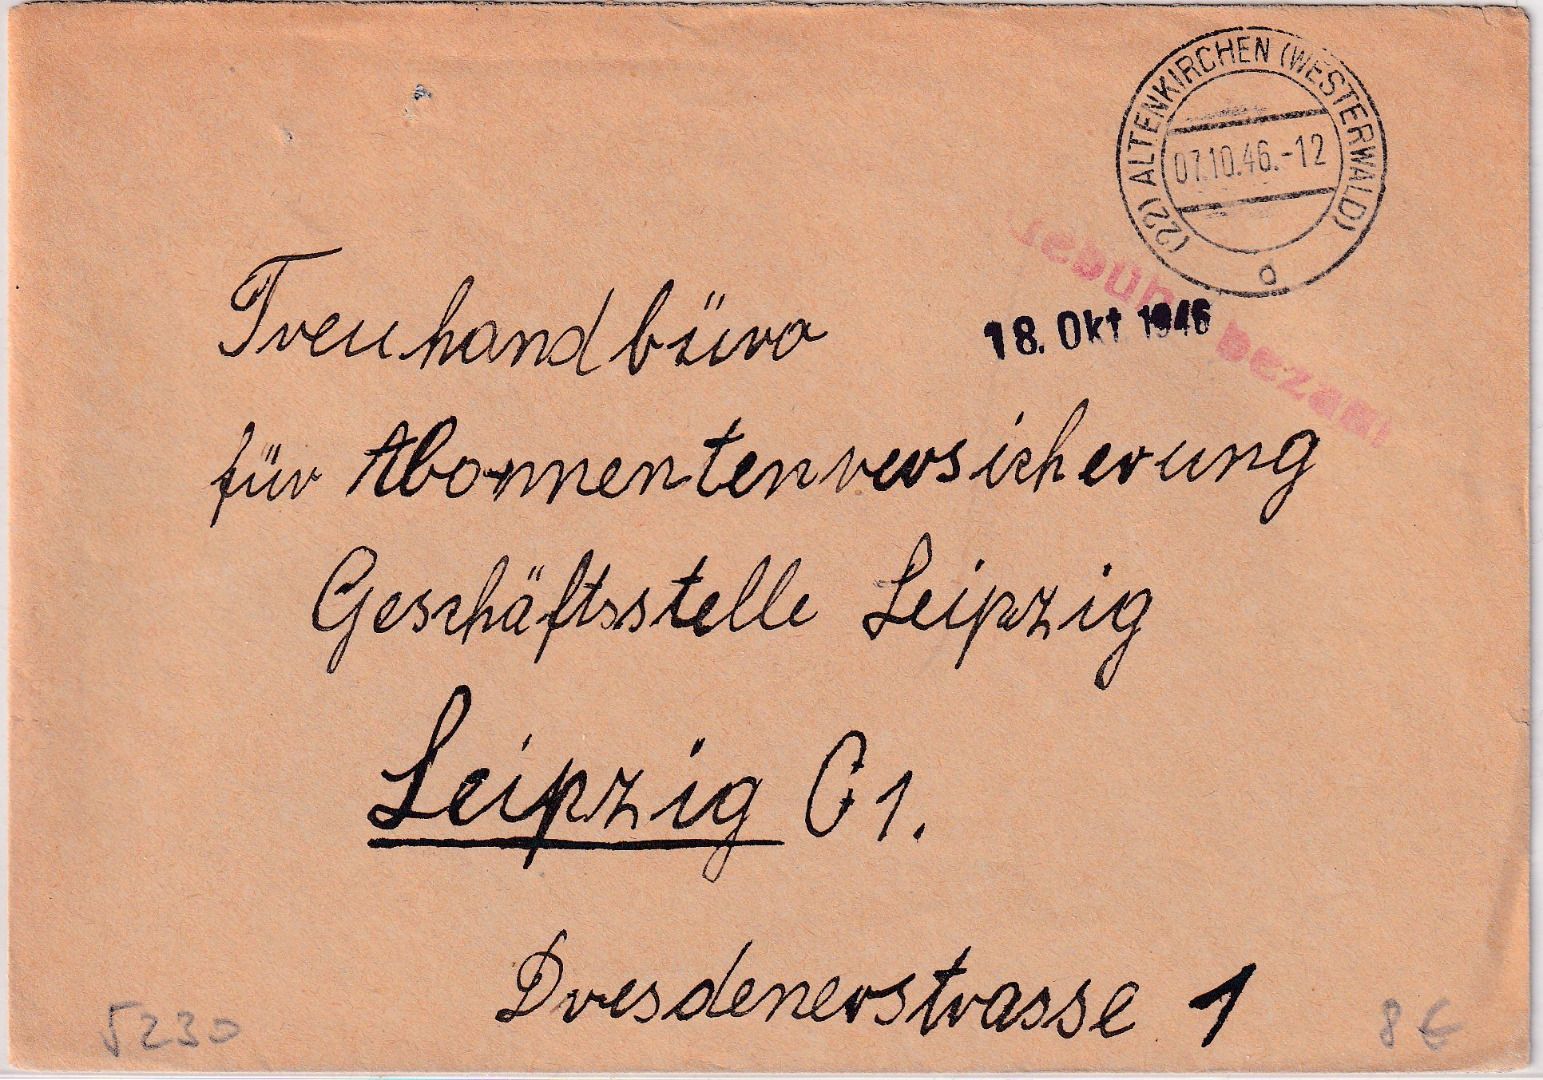 (22) ALTENKIRCHEN (WESTERWALD)
07.10.46.-12
o
Gebühr bezahlt
18. Okt 1946
Treuhandbüro
für Abonnentenversicherung
Geschäftsstelle Leipzig
Leipzig C1.
Dresdenerstrasse 1
5230
8 €